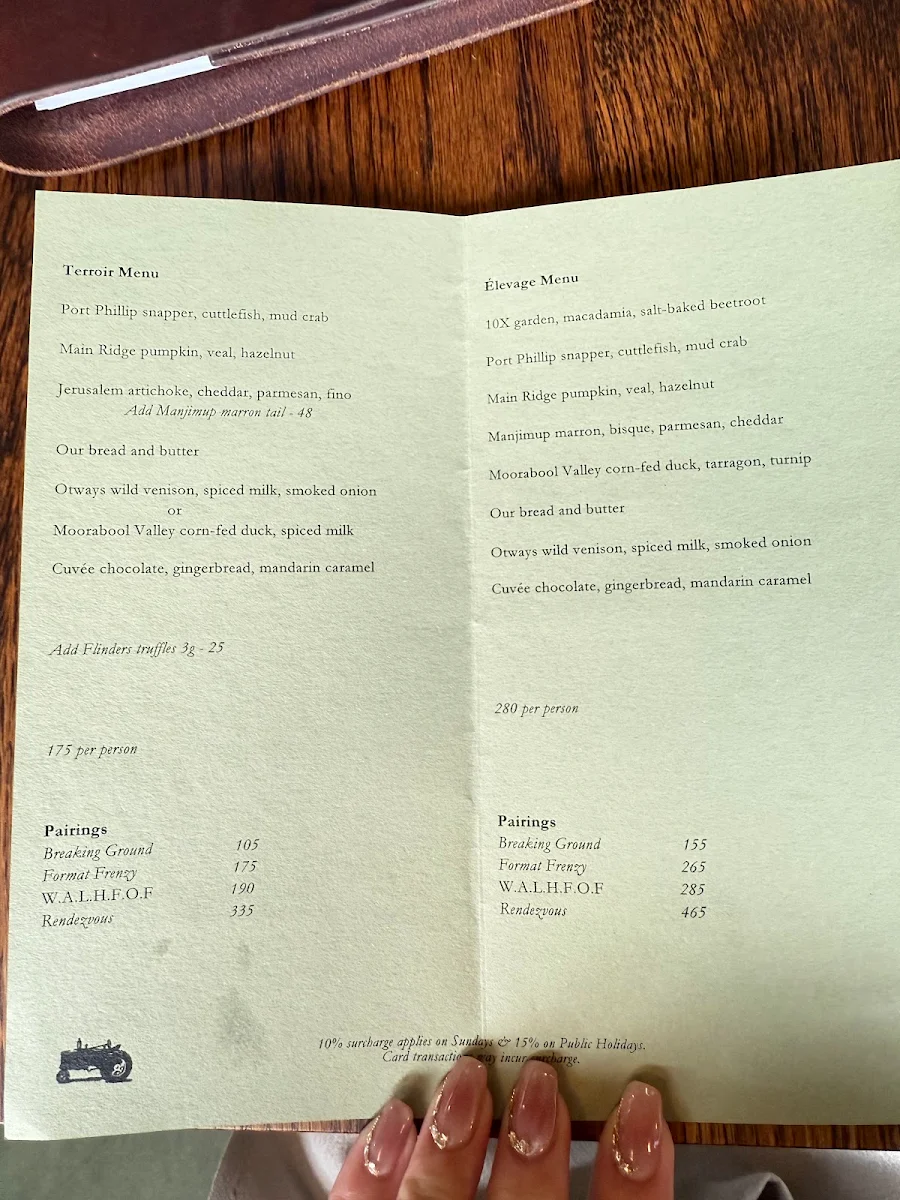 Terroir Menu
Port Phillip snapper, cuttlefish, mud crab
Main Ridge pumpkin, veal, hazelnut
Jerusalem artichoke, cheddar, parmesan, fino
Add Manjimup marron tail - 48
Our bread and butter
Otways wild venison, spiced milk, smoked onion
or
Moorabool Valley corn-fed duck, spiced milk
Cuvée chocolate, gingerbread, mandarin caramel
Add Flinders truffles 3g - 25
175 per person
Pairings
Breaking Ground 105
Format Frenzy 175
W.A.L.H.F.O.F 190
Rendezvous 335
Élevage Menu
10X garden, macadamia, salt-baked beetroot
Port Phillip snapper, cuttlefish, mud crab
Main Ridge pumpkin, veal, hazelnut
Manjimup marron, bisque, parmesan, cheddar
Moorabool Valley corn-fed duck, tarragon, turnip
Our bread and butter
Otways wild venison, spiced milk, smoked onion
Cuvée chocolate, gingerbread, mandarin caramel
280 per person
Pairings
Breaking Ground 155
Format Frenzy 265
W.A.L.H.F.O.F 285
Rendezvous 465
10% surcharge applies on Sundays & 15% on Public Holidays.
Card transactions may incur surcharge.